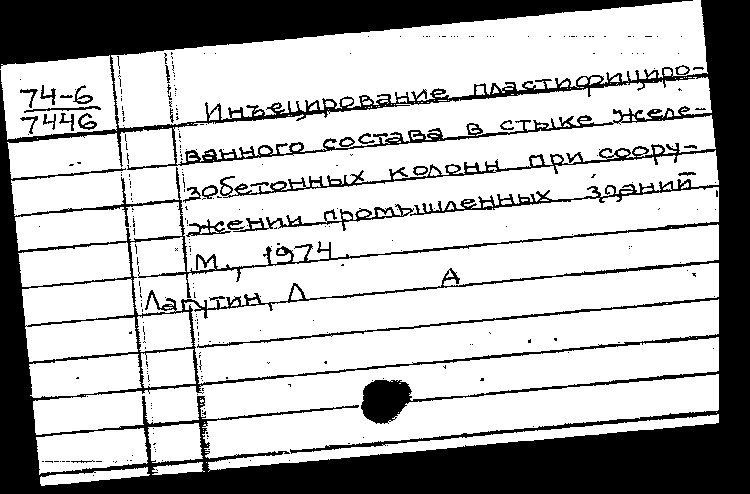 74-6
7446
Инъецирование пластифициро-
ванного состава в стыке желе-
зобетонных колонн при соору-
жении промышленных зданий
М., 1974.
Лагутин, Л А